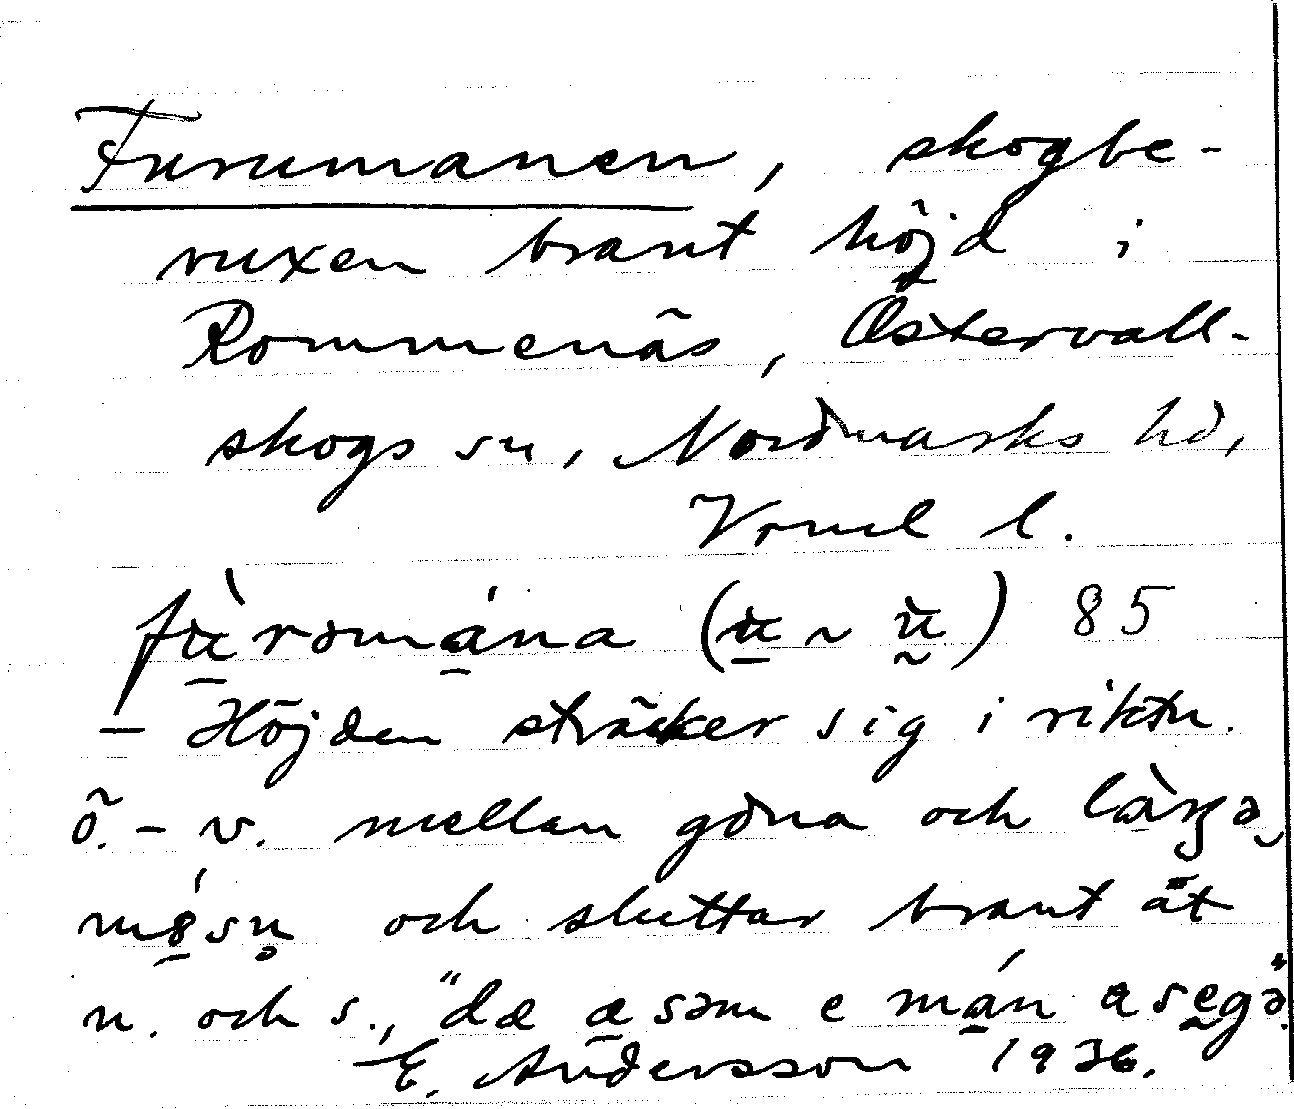 Furumanen, skogbe-
vuxen brant höjd i
Rommenäs, Östervall-
skogs sn, Nordmarks hd,
Vrml l.
fù̱romá̱na (ù̱ ~ ṵ̀) 85
– Höjden sträcker sig i riktn.
ö. – v. mellan gôna och
och sluttar brant åt
n. och s., "dæ æ̱ som e má̱n
E. Andersson 1936.